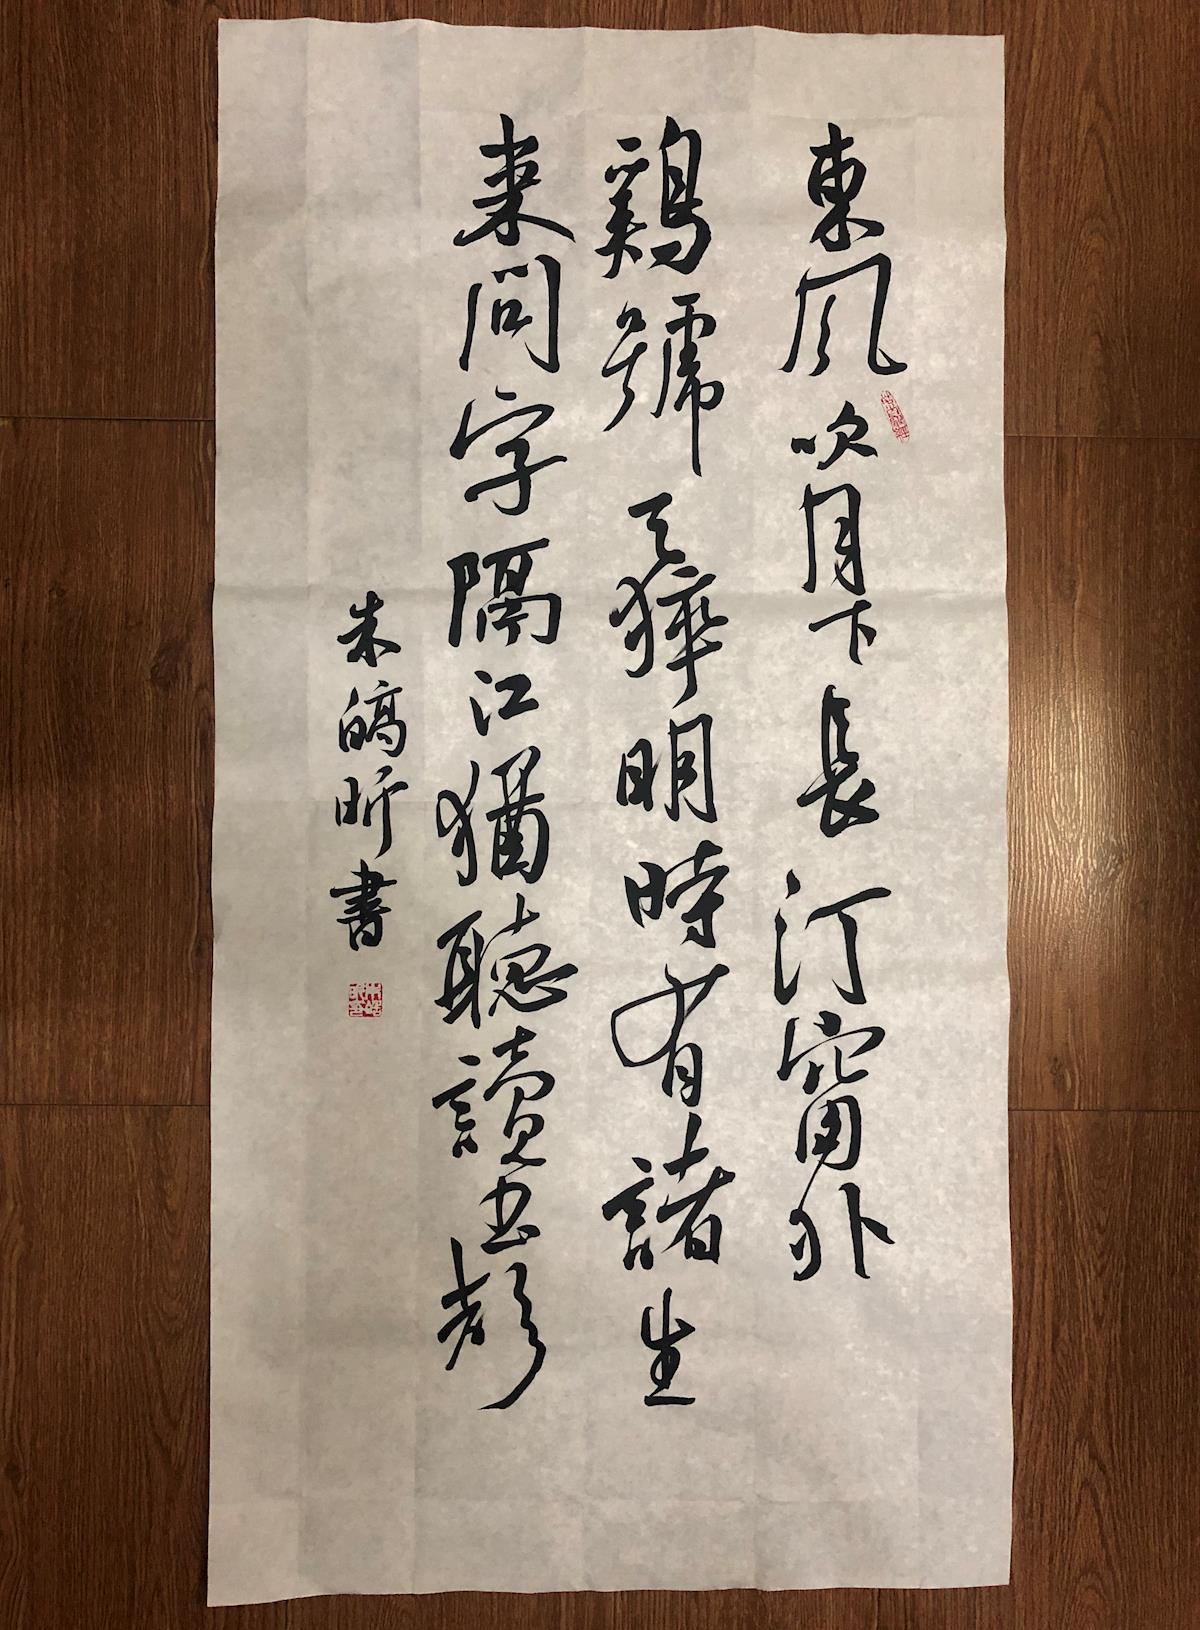 東風吹月下長汀窗外
鷄號天明時有諸生
来問字隔江猶聽讀书
朱皜昕書